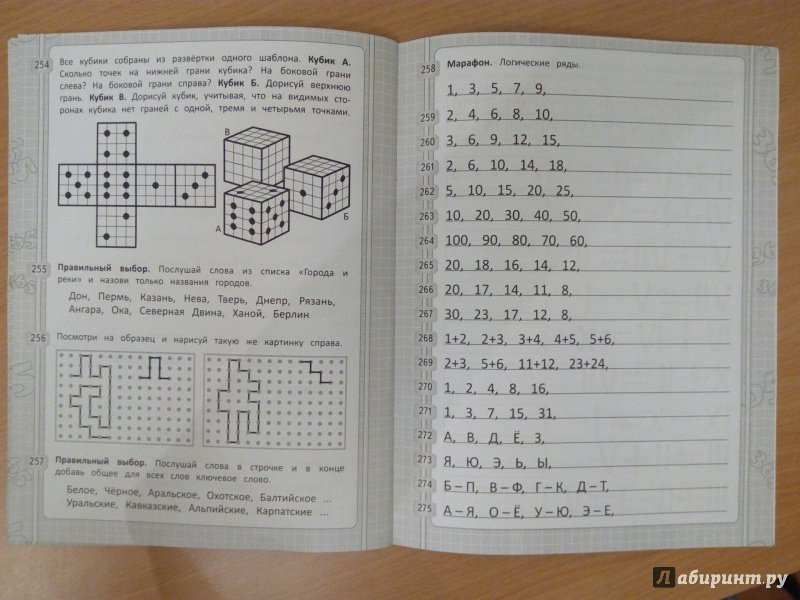 254
Все кубики собраны из развёртки одного шаблона. Кубик А.
Сколько точек на нижней грани кубика? На боковой грани
слева? На боковой грани справа? Кубик Б. Дорисуй верхнюю
грань. Кубик В. Дорисуй кубик, учитывая, что на видимых сто-
ронах кубика нет граней с одной, тремя и четырьмя точками.
В
А
Б
255
Правильный выбор. Послушай слова из списка «Города и
реки» и назови только названия городов.
Дон, Пермь, Казань, Нева, Тверь, Днепр, Рязань,
Ангара, Ока, Северная Двина, Ханой, Берлин
256
Посмотри на образец и нарисуй такую же картинку справа.
257
Правильный выбор. Послушай слова в строчке и в конце
добавь общее для всех слов ключевое слово.
Белое, Чёрное, Аральское, Охотское, Балтийское ...
Уральские, Кавказские, Альпийские, Карпатские ...
258 Марафон. Логические ряды.
1, 3, 5, 7, 9,
259 2, 4, 6, 8, 10,
260 3, 6, 9, 12, 15,
261 2, 6, 10, 14, 18,
262 5, 10, 15, 20, 25,
263 10, 20, 30, 40, 50,
264 100, 90, 80, 70, 60,
265 20, 18, 16, 14, 12,
266 20, 17, 14, 11, 8,
267 30, 23, 17, 12, 8,
268 1+2, 2+3, 3+4, 4+5, 5+6,
269 2+3, 5+6, 11+12, 23+24,
270 1, 2, 4, 8, 16,
271 1, 3, 7, 15, 31,
272 А, В, Д, Ё, З,
273 Я, Ю, Э, Ь, Ы,
274 Б – П, В – Ф, Г – К, Д – Т,
275 А – Я, О – Ё, У – Ю, Э – Е,
Лабиринт.ру